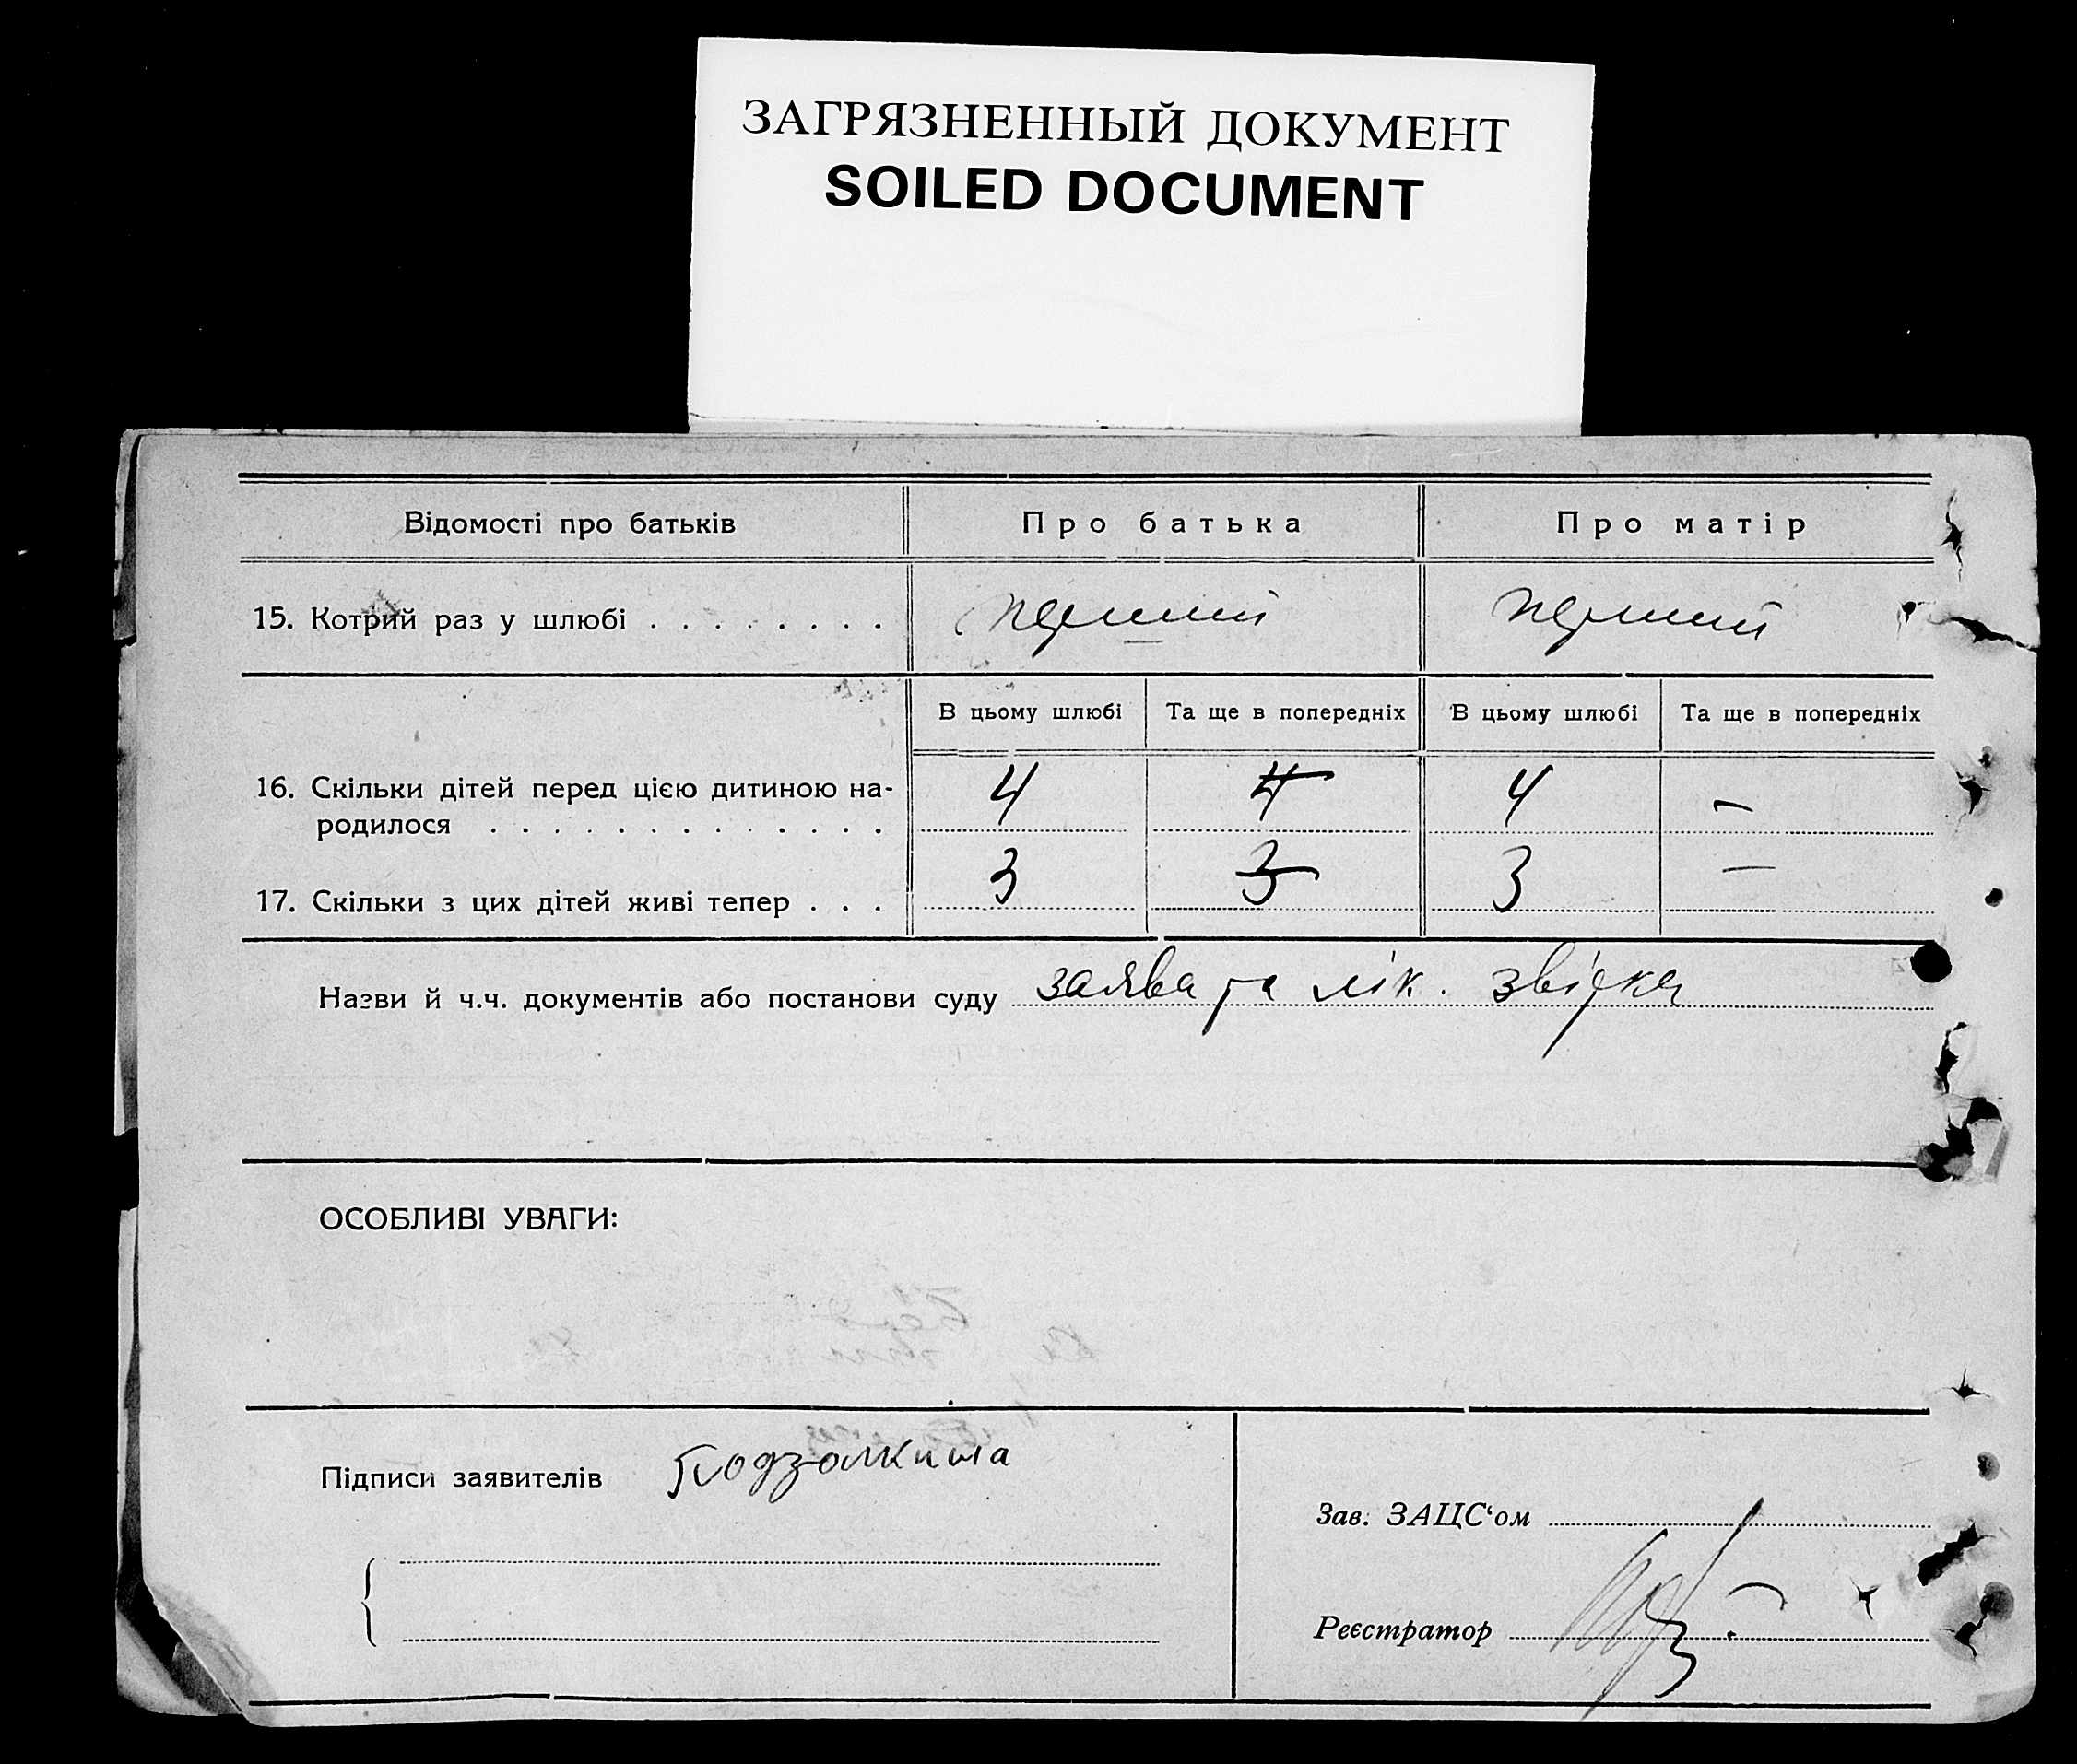 ЗАГРЯЗНЕННЫЙ ДОКУМЕНТ
SOILED DOCUMENT
Відомості про батьків Про батька Про матір
15. Котрий раз у шлюбі . . . . . . . . перший перший
В цьому шлюбі Та ще в попередніх В цьому шлюбі Та ще в попередніх
16. Скільки дітей перед цією дитиною на-
родилося . . . . . . . . . . . . . . 4 4 4 —
17. Скільки з цих дітей живі тепер . . . 3 3 3 —
Назви й ч.ч. документів або постанови суду заява та лік. звірка
ОСОБЛИВІ УВАГИ:
Підписи заявителів Подзолкина
Зав. ЗАЦС‘ом
Реєстратор